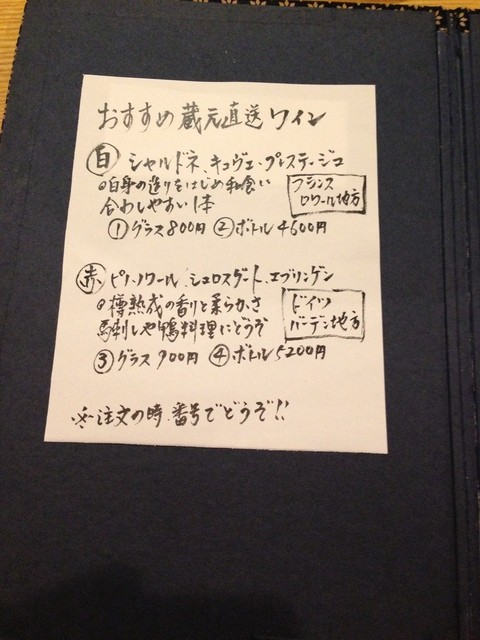 おすすめ蔵元直送ワイン
白 シャルドネ、キュヴェ・プレステージュ
●白身の造りをはじめ和食に
合わしやすい1本
フランス
ロワール地方
①グラス800円 ②ボトル4600円
赤 ピノ・ノワール シュロスゲート、エブリンゲン
●樽熟成の香りと柔らかさ
馬刺しや鴨料理にどうぞ
ドイツ
バーデン地方
③グラス900円 ④ボトル5200円
※注文の時、番号でどうぞ!!